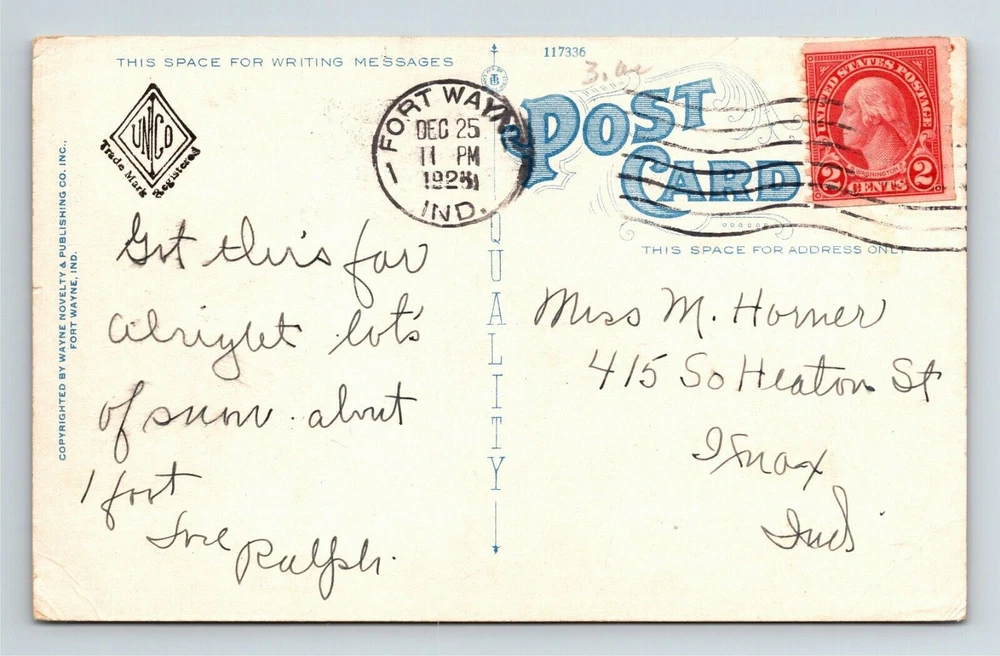 THIS SPACE FOR WRITING MESSAGES
UNCO
Trade Mark Registered
COPYRIGHTED BY WAYNE NOVELTY & PUBLISHING CO. INC.,
FORT WAYNE, IND.
Got this far
alright lot's
of snow. about
1 foot
Love Ralph.
117336
FORT WAYNE
DEC 25
11 PM
IND.
1
QUALITY
POST
CARD
UNITED STATES POSTAGE
WASHINGTON
2 CENTS 2
THIS SPACE FOR ADDRESS ONLY
Miss M. Horner
415 So Heaton St
Knox
Ind